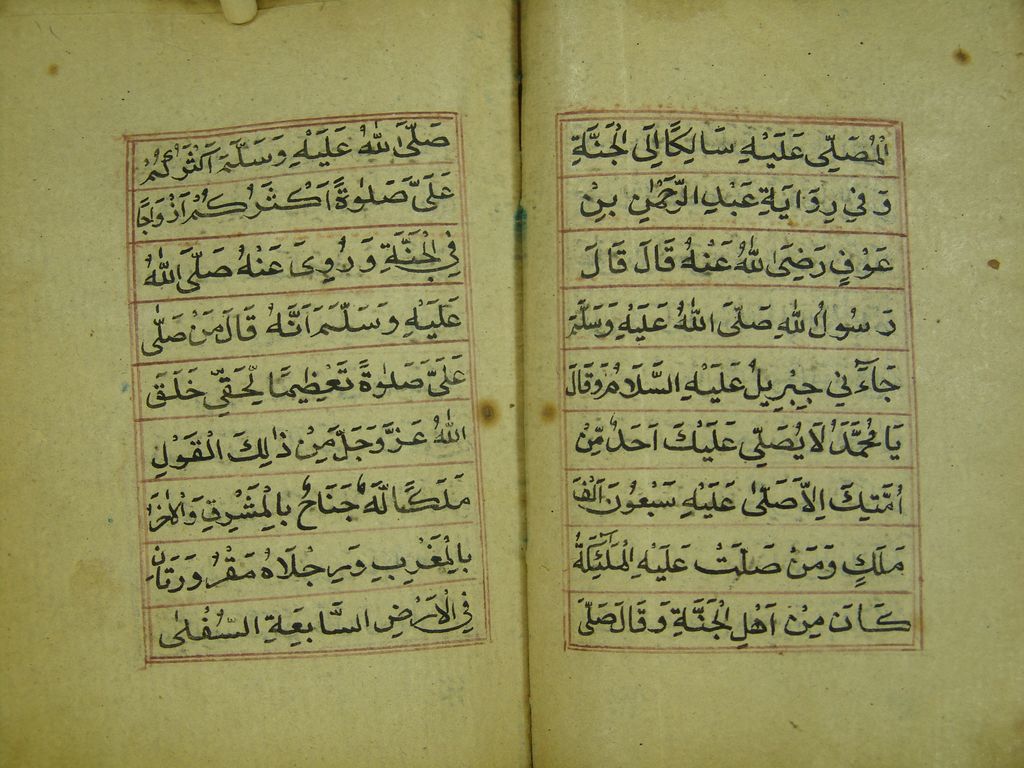 الْمُصَلِّي عَلَيْهِ سَالِكًا اِلَى الْجَنَّةِ
وَفِي رِوَايَةِ عَبْدِ الرَّحْمٰنِ بِنْ
عَوْفٍ رَضِيَ اللّٰهُ عَنْهُ قَالَ قَالَ
رَسُولُ اللّٰهِ صَلَّى اللّٰهُ عَلَيْهِ وَسَلَّمَ
جَآءَنِي جِبْرِيلُ عَلَيْهِ السَّلَامُ وَقَالَ
يَا مُحَمَّدُ لَا يُصَلِّي عَلَيْكَ اَحَدٌ مِّنْ
اُمَّتِكَ اِلَّا صَلّٰى عَلَيْهِ سَبْعُونَ اَلْفَ
مَلَكٍ وَمَنْ صَلَّتْ عَلَيْهِ الْمَلٰئِكَةُ
كَانَ مِنْ اَهْلِ الْجَنَّةِ وَقَالَ صَلَّى
صَلَّى اللّٰهُ عَلَيْهِ وَسَلَّمَ اَكْثَرُكُمْ
عَلَيَّ صَلٰوةً اَكْثَرُكُمْ اَزْوَاجًا
فِي الْجَنَّةِ وَرُوِيَ عَنْهُ صَلَّى اللّٰهُ
عَلَيْهِ وَسَلَّمَ اَنَّهُ قَالَ مَنْ صَلّٰى
عَلَيَّ صَلٰوةً تَعْظِيمًا لِحَقِّي خَلَقَ
اللّٰهُ عَزَّ وَجَلَّ مِنْ ذٰلِكَ الْقَوْلِ
مَلَكًا لَّهُ جَنَاحٌ بِالْمَشْرِقِ وَالْاٰخَرُ
بِالْمَغْرِبِ وَرِجْلَاهُ مَقْرُورَتَانِ
فِي الْاَرْضِ السَّابِعَةِ السُّفْلٰى